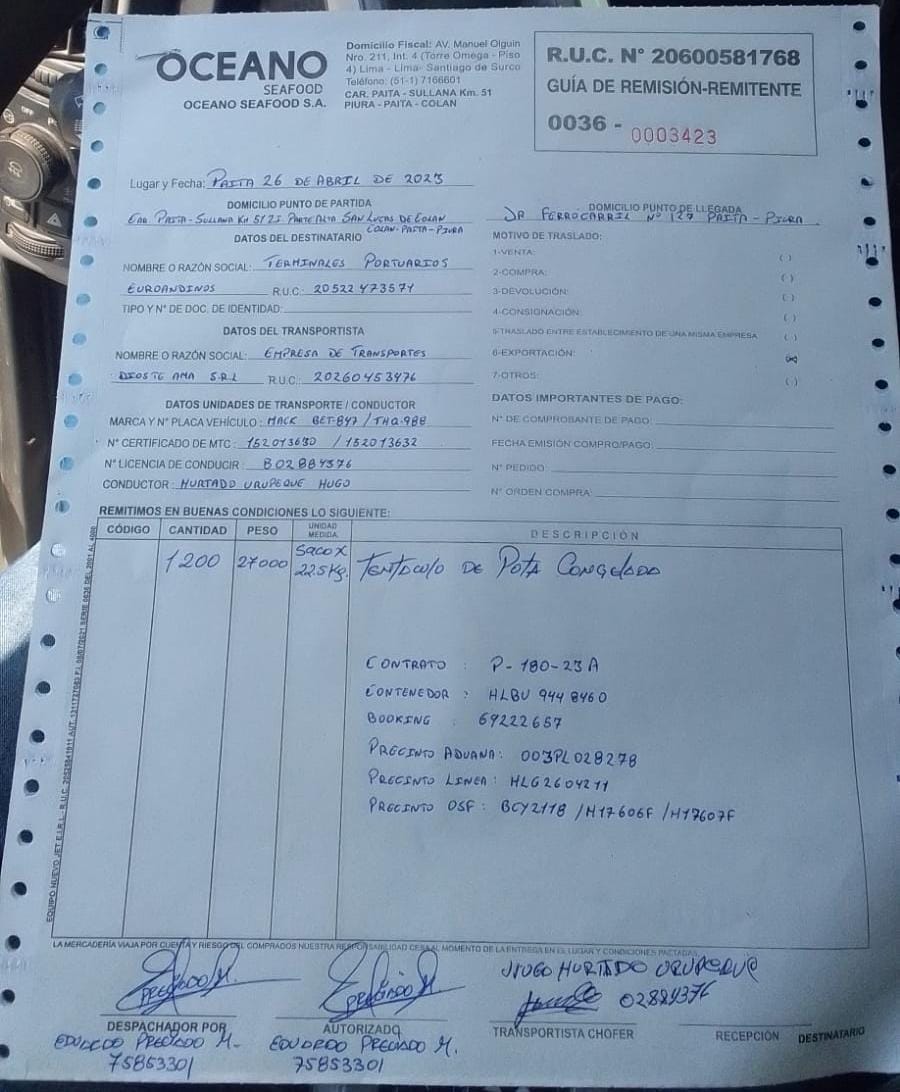 OCEANO
SEAFOOD
OCEANO SEAFOOD S.A.
Domicilio Fiscal: AV. Manuel Olguin
Nro. 211, Int. 4 (Torre Omega - Piso
4) Lima - Lima- Santiago de Surco
Teléfono: (51-1) 7166601
CAR. PAITA - SULLANA Km. 51
PIURA - PAITA - COLAN
R.U.C. N° 20600581768
GUÍA DE REMISIÓN-REMITENTE
0036 - 0003423
Lugar y Fecha: PAITA 26 DE ABRIL DE 2023
DOMICILIO PUNTO DE PARTIDA
CAR. PAITA-SULLANA KM 51/25 PARTE ALTA SAN LUCAS DE COLAN
COLAN-PAITA-PIURA
DOMICILIO PUNTO DE LLEGADA
JR FERROCARRIL N° 127 PAITA-PIURA
DATOS DEL DESTINATARIO
NOMBRE O RAZÓN SOCIAL: TERMINALES PORTUARIOS
EUROANDINOS R.U.C: 20522473571
TIPO Y N° DE DOC. DE IDENTIDAD:
DATOS DEL TRANSPORTISTA
NOMBRE O RAZÓN SOCIAL: EMPRESA DE TRANSPORTES
DIOSTE AMA S.R.L R.U.C.: 20260453476
DATOS UNIDADES DE TRANSPORTE / CONDUCTOR
MARCA Y N° PLACA VEHÍCULO: MACK BET-847 / THQ-988
N° CERTIFICADO DE MTC: 152013630 / 152013632
N° LICENCIA DE CONDUCIR: B02884376
CONDUCTOR: HURTADO URUPEQUE HUGO
MOTIVO DE TRASLADO:
1-VENTA: ( )
2-COMPRA: ( )
3-DEVOLUCIÓN: ( )
4-CONSIGNACIÓN: ( )
5-TRASLADO ENTRE ESTABLECIMIENTO DE UNA MISMA EMPRESA ( )
6-EXPORTACIÓN: (x)
7-OTROS: ( )
DATOS IMPORTANTES DE PAGO:
N° DE COMPROBANTE DE PAGO:
FECHA EMISIÓN COMPRO/PAGO:
N° PEDIDO:
N° ORDEN COMPRA:
REMITIMOS EN BUENAS CONDICIONES LO SIGUIENTE:
CÓDIGO CANTIDAD PESO UNIDAD MEDIDA DESCRIPCIÓN
1200 27000 Saco x 22.5Kg. Tentáculo DE Pota Congelado
CONTRATO : P-180-23A
CONTENEDOR : HLBU 944 8460
BOOKING : 69222657
PRECINTO ADUANA: 003PL028278
PRECINTO LINEA: HLG2604211
PRECINTO OSF: BCY2118 /H17606F /H17607F
LA MERCADERÍA VIAJA POR CUENTA Y RIESGO DEL COMPRADOS NUESTRA RESPONSABILIDAD CESA AL MOMENTO DE LA ENTREGA EN EL LUGAR Y CONDICIONES PACTADAS
DESPACHADOR POR
EDUARDO PRECIADO M.
75853301
AUTORIZADO
EDUARDO PRECIADO M.
75853301
HUGO HURTADO URUPEQUE
02884376
TRANSPORTISTA CHOFER
RECEPCIÓN DESTINATARIO